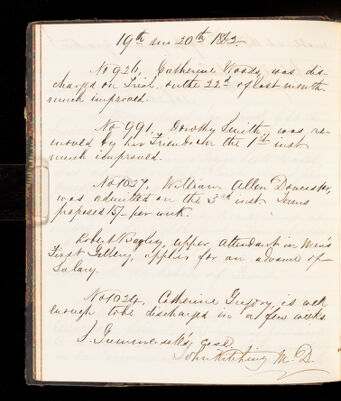 19th 20th 1862
No 926, Catherine Woods, was dis-
charged on Trial, on the 22d of last month
much improved.
No 991, Dorothy Smith, was re-
moved by her Friends on the 1st inst
much improved.
No 1027, William Allen
was admitted on the 3rd inst Terms
proposed 15/- per week.
Robert upper Attendant in Men's
First Gallery, applies for an advance of
Salary.
No 1024, Catherine Gregory, is well
enough to be discharged in a few weeks
John Kitching M.D.